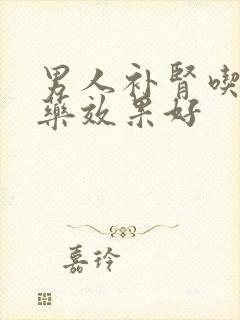 男人补肾喫
藥效果好
嘉玲